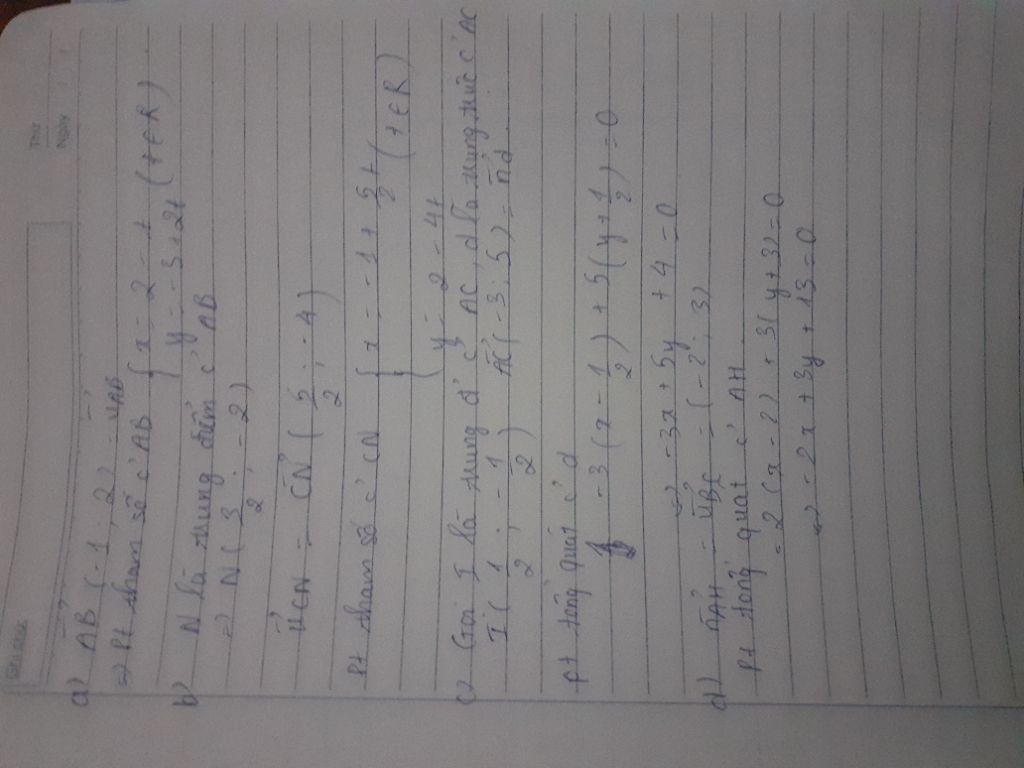 Thứ
Ngày
a) AB→ (-1; 2) = u→AB
=> Pt tham số c' AB { x = 2 - t (t ∈ R)
y = -3 + 2t
b) N là trung điểm c' AB
=> N ( 3/2 ; -2 )
u→CN = CN→ ( 5/2 ; -4 )
Pt tham số c' CN { x = -1 + 5/2 t (t ∈ R)
y = 2 - 4t
c) Gọi I là trung đ' c' AC, d là trung trực c' AC
I ( 1/2 ; -1/2 ) AC→ (-3; 5) = n→d
pt tổng quát c' d
-3 ( x - 1/2 ) + 5 ( y + 1/2 ) = 0
<=> -3x + 5y + 4 = 0
d) n→AH = u→BC = (-2; 3)
pt tổng quát c' AH
-2 (x - 2) + 3( y + 3) = 0
<=> -2x + 3y + 13 = 0